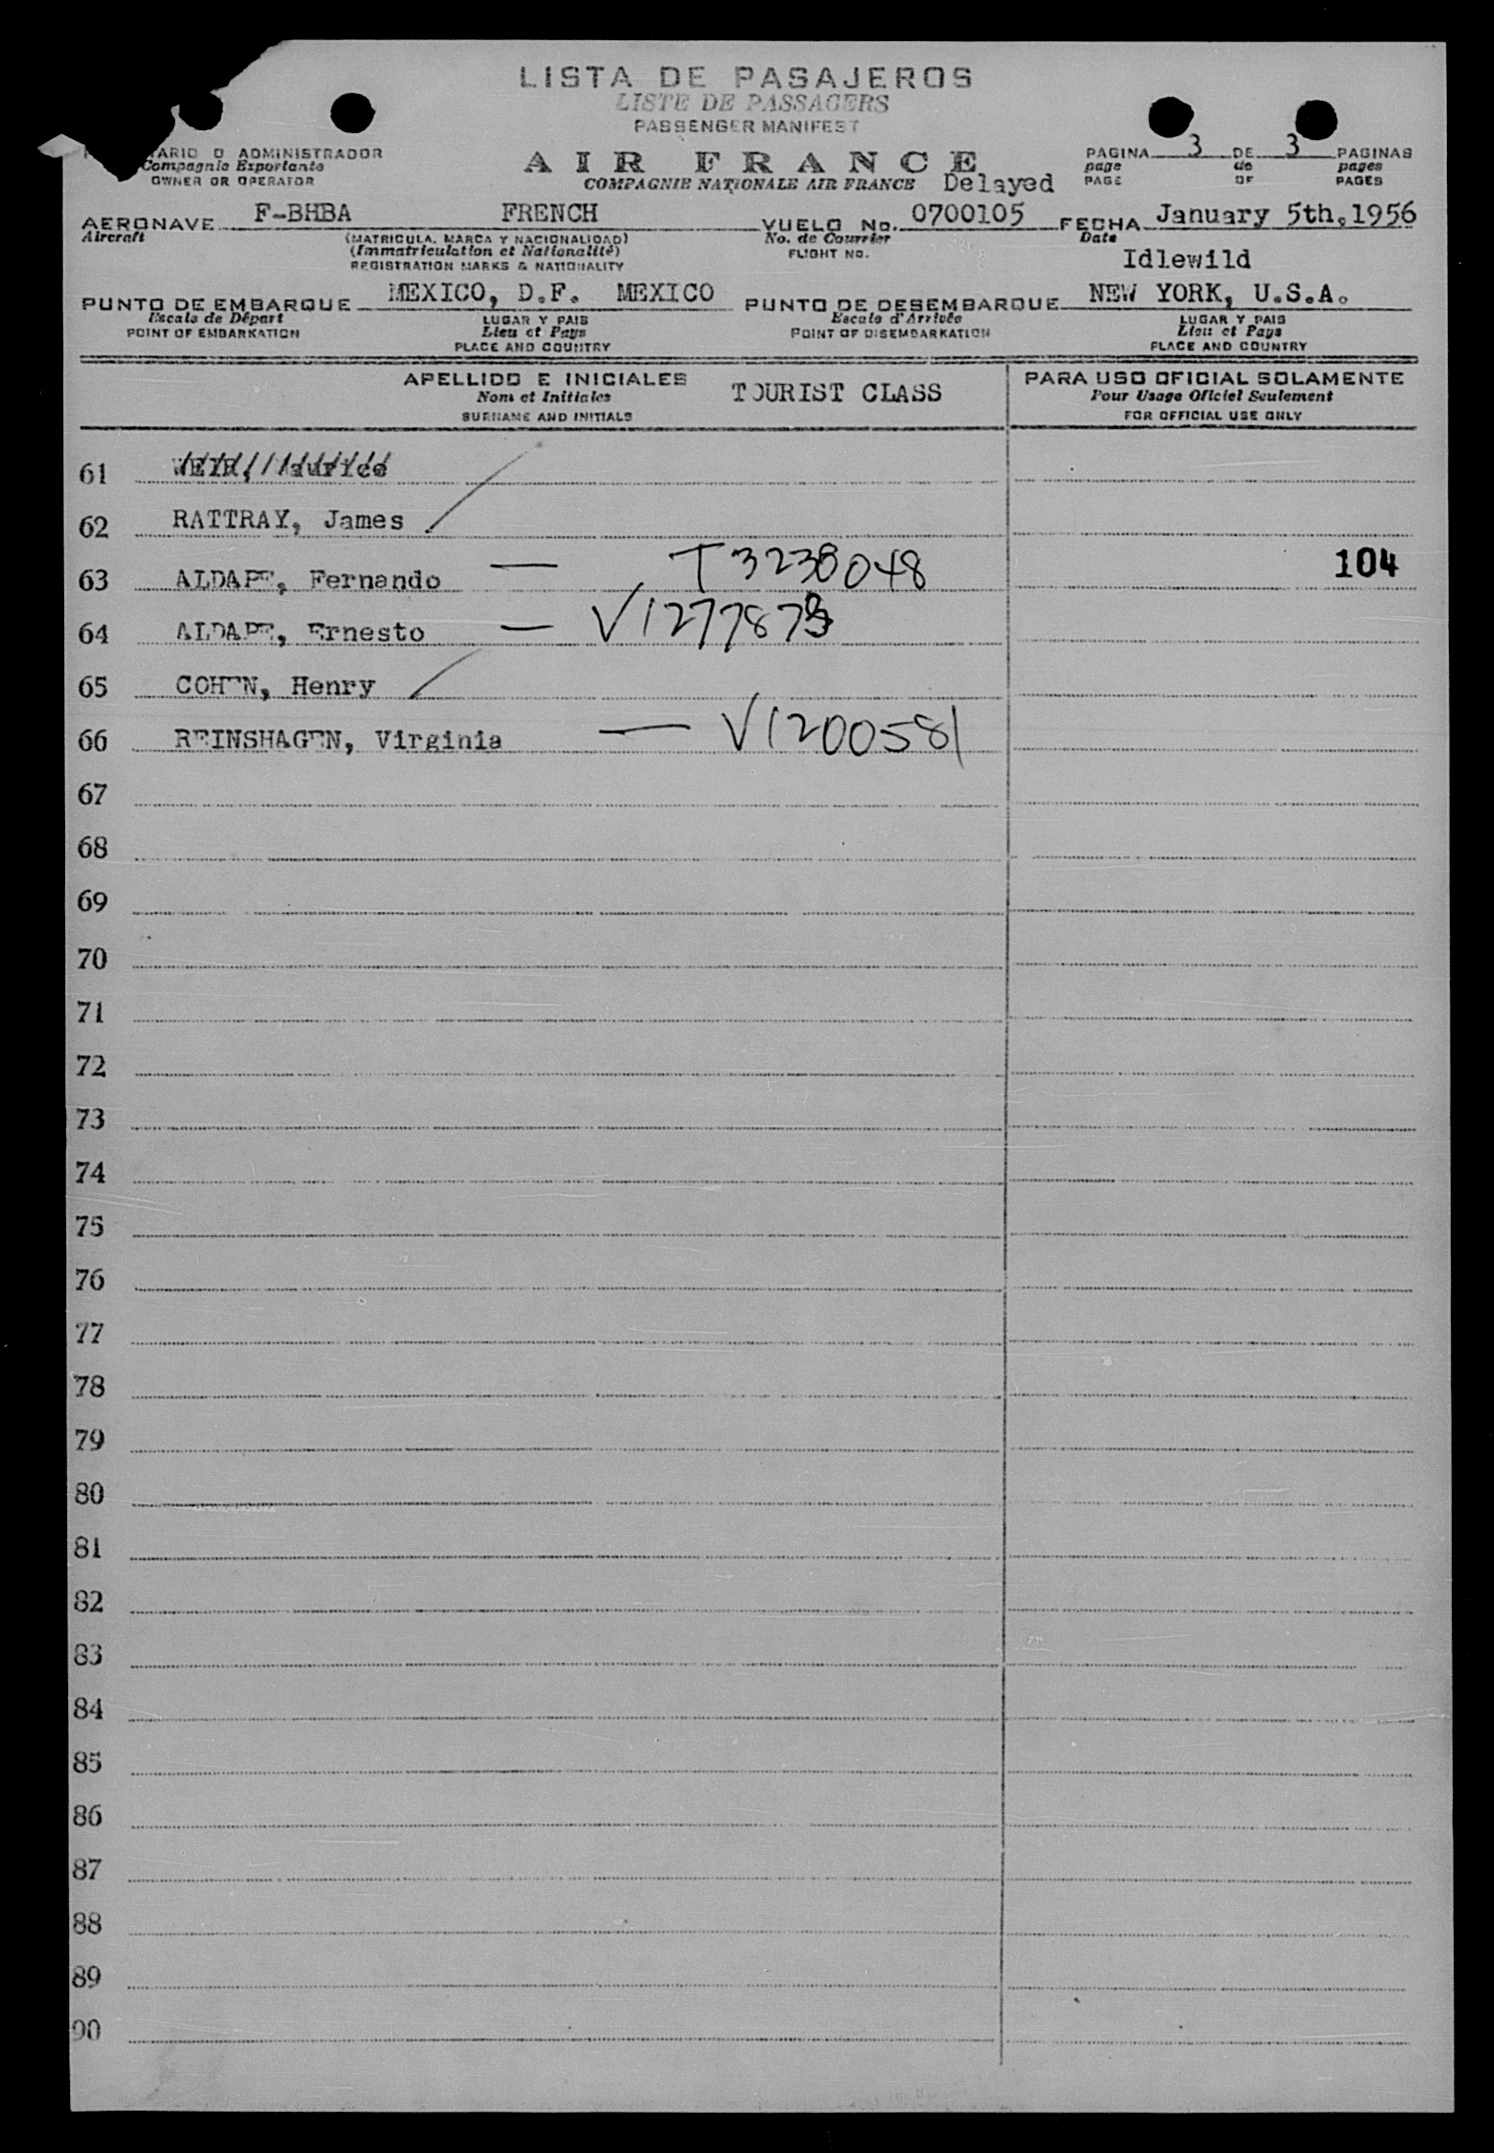 LISTA DE PASAJEROS
LISTE DE PASSAGERS
PASSENGER MANIFEST
TARIO O ADMINISTRADOR
Compagnie Exportante
OWNER OR OPERATOR
AIR FRANCE
COMPAGNIE NATIONALE AIR FRANCE Delayed
PAGINA 3 DE 3 PAGINAS
page de pages
PAGE OF PAGES
AERONAVE F-BHBA FRENCH VUELO No. 0700105 FECHA January 5th,1956
Aircraft (MATRICULA, MARCA Y NACIONALIDAD) No. de Courrier Date
(Immatriculation et Nationalité) FLIGHT NO. Idlewild
REGISTRATION MARKS & NATIONALITY
PUNTO DE EMBARQUE MEXICO, D.F. MEXICO PUNTO DE DESEMBARQUE NEW YORK, U.S.A.
Escale de Départ LUGAR Y PAIS Escale d'Arrivée LUGAR Y PAIS
POINT OF EMBARKATION Lieu et Pays POINT OF DISEMBARKATION Lieu et Pays
PLACE AND COUNTRY PLACE AND COUNTRY
APELLIDO E INICIALES TOURIST CLASS PARA USO OFICIAL SOLAMENTE
Nom et Initiales Pour Usage Officiel Seulement
SURNAME AND INITIALS FOR OFFICIAL USE ONLY
61
62 RATTRAY, James
63 ALDAPE, Fernando — T3238048 104
64 ALDAPE, Ernesto — V1277873
65 COHEN, Henry
66 REINSHAGEN, Virginia — V1200581
67
68
69
70
71
72
73
74
75
76
77
78
79
80
81
82
83
84
85
86
87
88
89
90